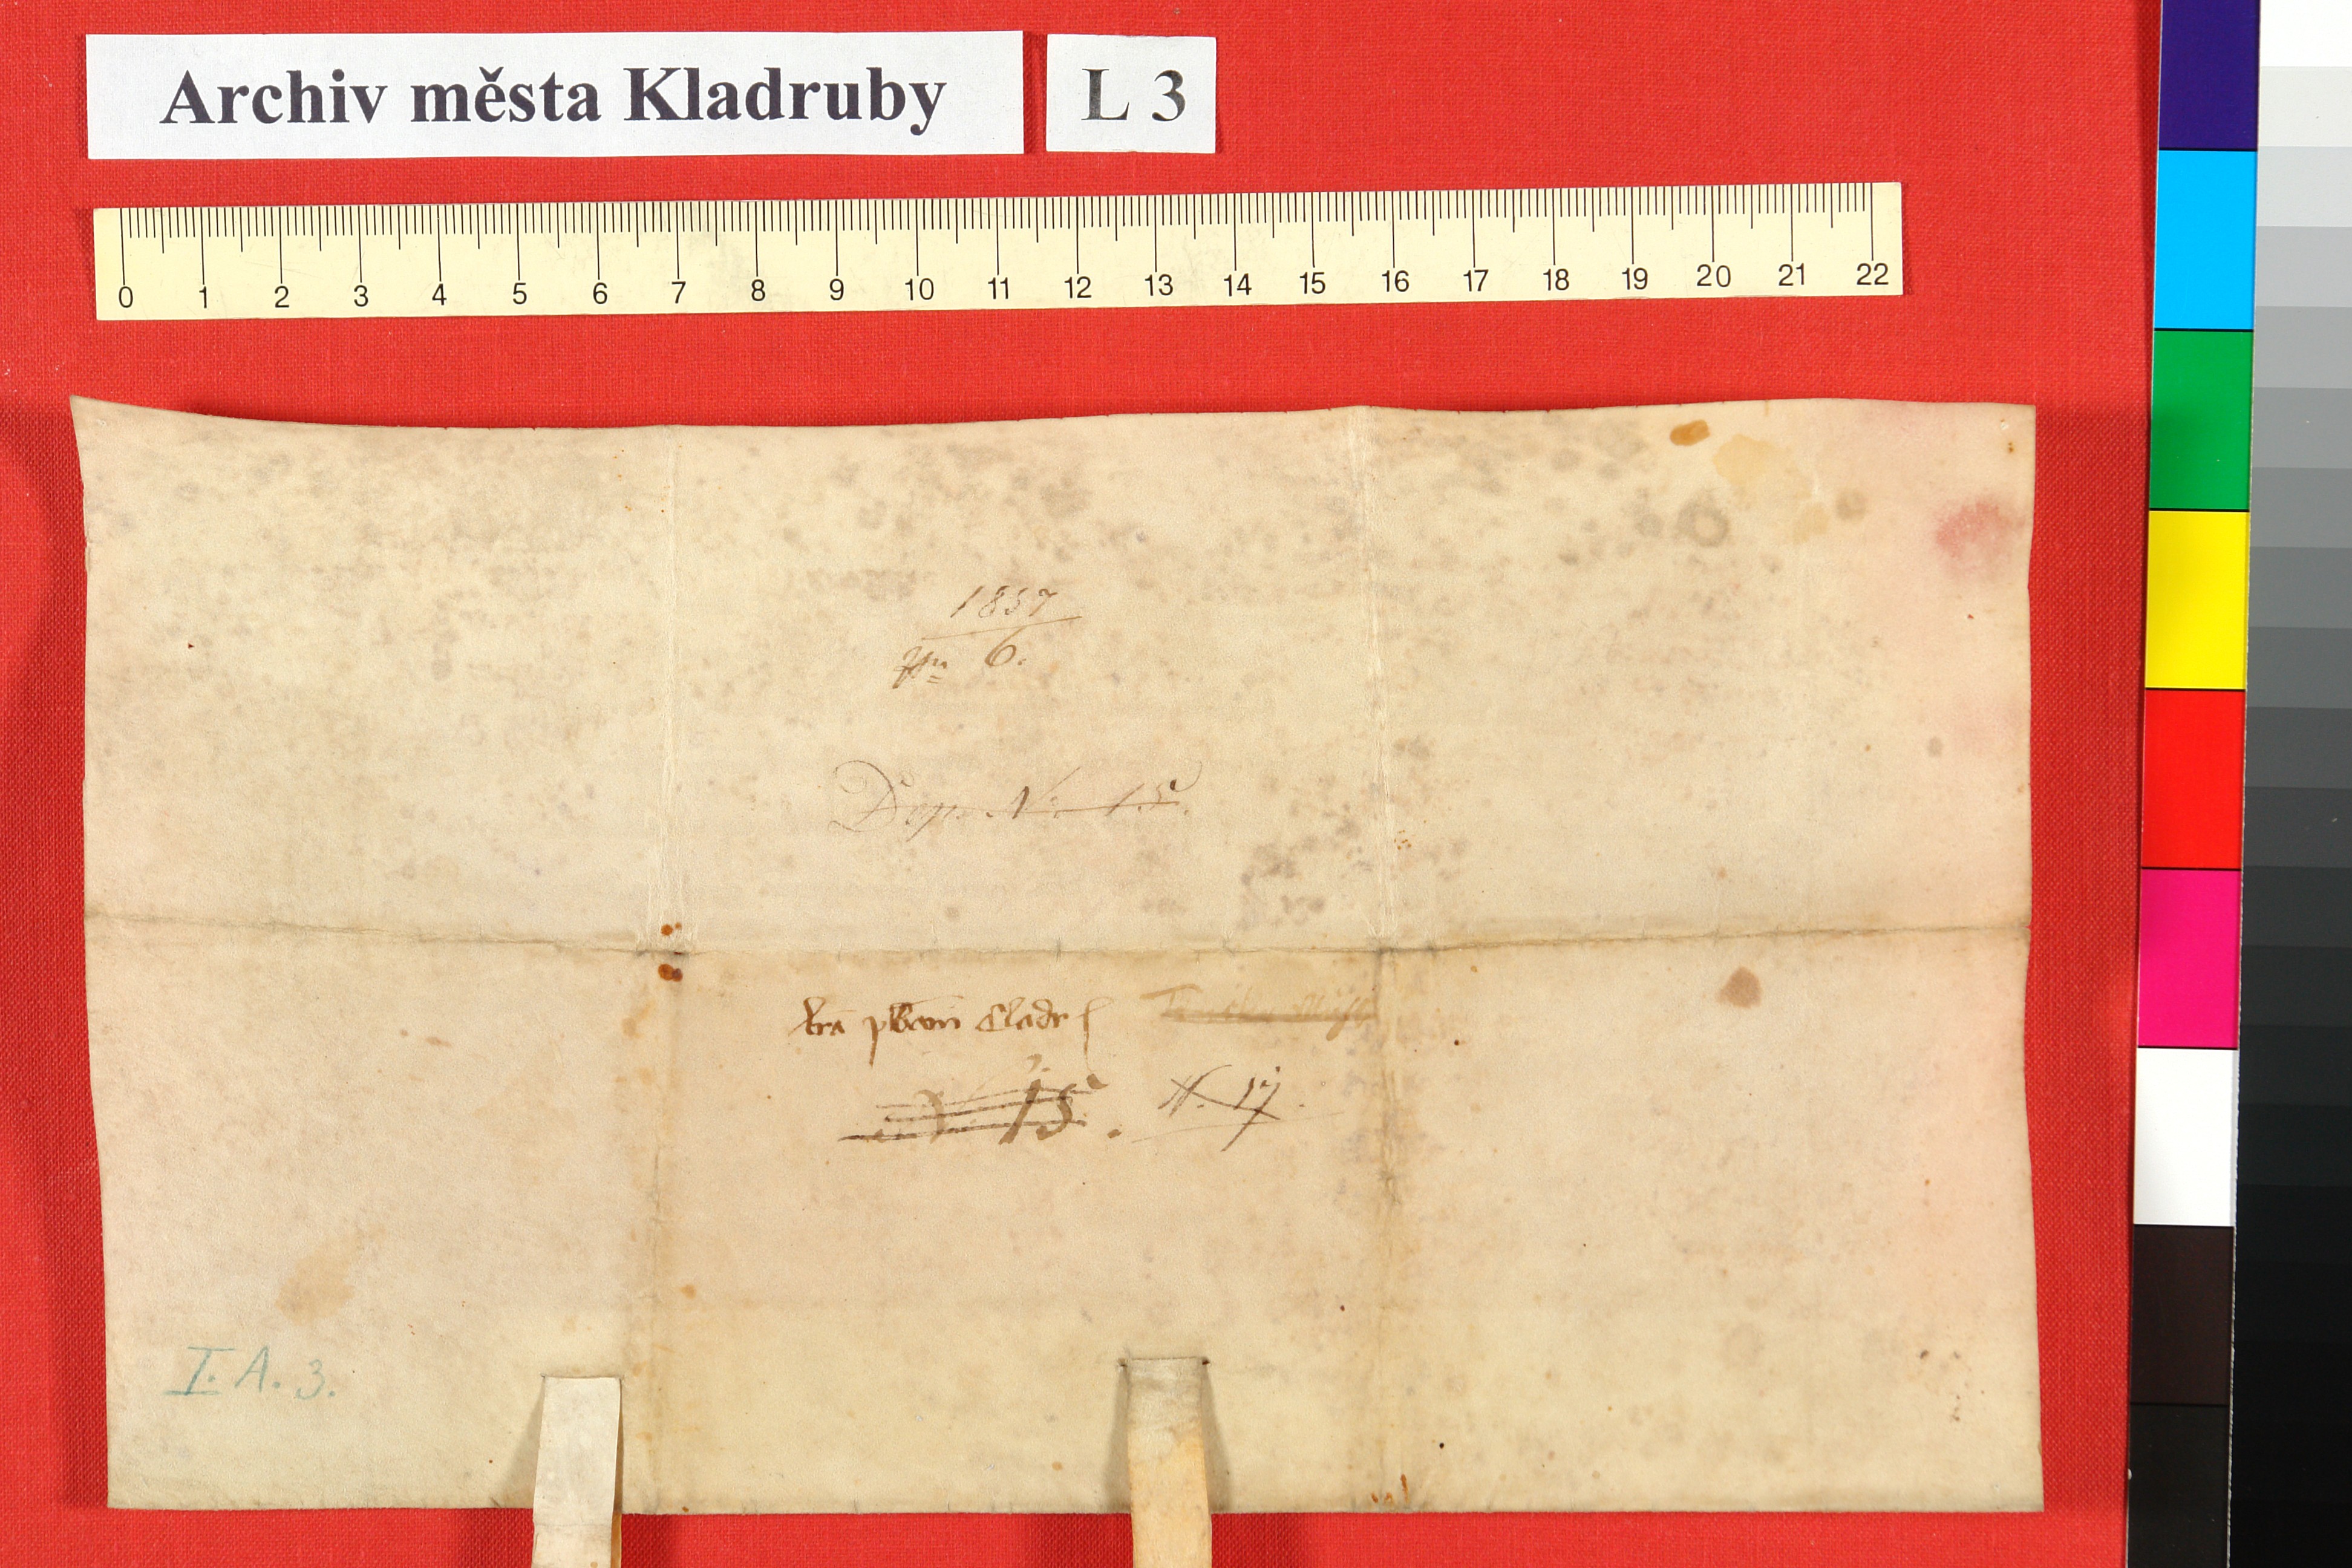 Archiv města Kladruby L 3
0 1 2 3 4 5 6 7 8 9 10 11 12 13 14 15 16 17 18 19 20 21 22
1857
6.
N. 15.
lr̄a plebani Cladr
15. N. 17.
I. A. 3.